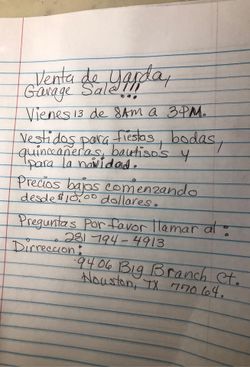 Venta de Yarda,
Garage Sale!!!
Vienes 13 de 8AM a 3PM.
Vestidos para fiestas, bodas,
quinceañeras, bautisos y
para la navidad.
Precios bajos comenzando
desde $10.00 dollares.
Preguntas Por favor llamar al :
281-794-4913
Dirreccion:
9406 Big Branch Ct.
Houston, TX 77064.